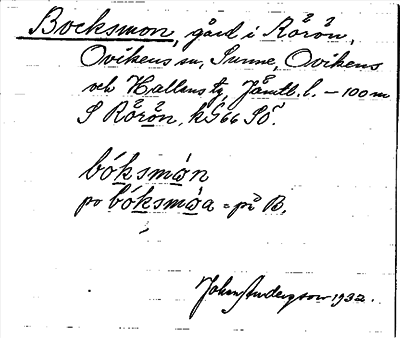 Bocksmon, gård i Rörön,
Ovikens sn, Sunne, Ovikens
och Hallens tg, Jämtl. l. – 100 m
S Rörön, k 566 SÖ.
bóksmɷn
po bóksmɷ̀a = på B.
John Andersson 1932.